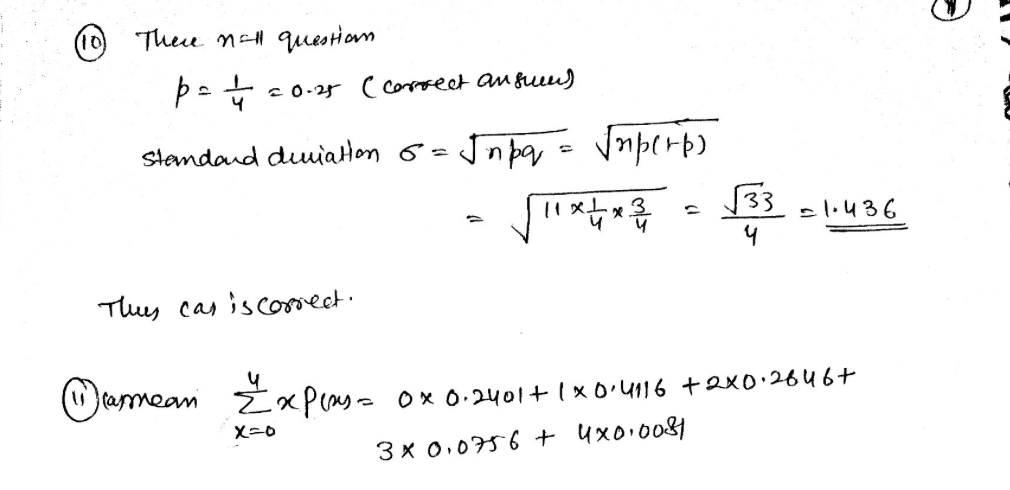 (10) There n=11 question
p = 1/4 = 0.25 (correct answer)
standard deviation σ = √npq = √np(1-p)
= √11 × 1/4 × 3/4 = √33/4 = 1.436
Thus (a) is correct.
(11) (a) mean Σ_{x=0}^{4} x P(x) = 0 × 0.2401 + 1 × 0.4116 + 2×0.2646 +
3 × 0.0756 + 4×0.0081